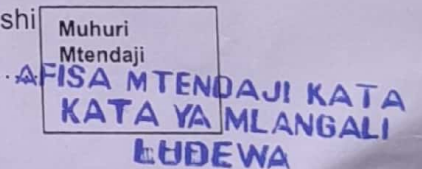 shi
Muhuri
Mtendaji
AFISA MTENDAJI KATA
KATA YA MLANGALI
LUDEWA